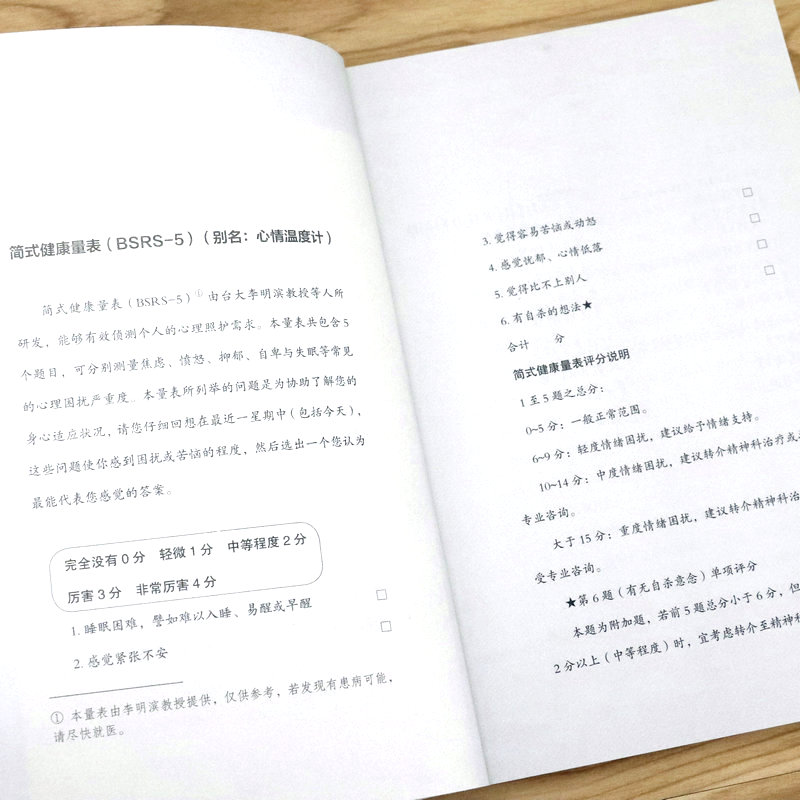 简式健康量表（BSRS-5）（别名：心情温度计）
简式健康量表（BSRS-5）① 由台大李明滨教授等人所
研发，能够有效侦测个人的心理照护需求。本量表共包含5
个题目，可分别测量焦虑、愤怒、抑郁、自卑与失眠等常见
的心理困扰严重度。本量表所列举的问题是为协助了解您的
身心适应状况，请您仔细回想在最近一星期中（包括今天），
这些问题使你感到困扰或苦恼的程度，然后选出一个您认为
最能代表您感觉的答案。
完全没有0分 轻微1分 中等程度2分
厉害3分 非常厉害4分
1. 睡眠困难，譬如难以入睡、易醒或早醒 □
2. 感觉紧张不安 □
① 本量表由李明滨教授提供，仅供参考，若发现有患病可能，
请尽快就医。
3. 觉得容易苦恼或动怒 □
4. 感觉忧郁、心情低落 □
5. 觉得比不上别人 □
6. 有自杀的想法★ □
合计 分
简式健康量表评分说明
1至5题之总分：
0~5分：一般正常范围。
6~9分：轻度情绪困扰，建议给予情绪支持。
10~14分：中度情绪困扰，建议转介精神科治疗或
专业咨询。
大于15分：重度情绪困扰，建议转介精神科治
受专业咨询。
★第6题（有无自杀意念）单项评分
本题为附加题，若前5题总分小于6分，但
2分以上（中等程度）时，宜考虑转介至精神科